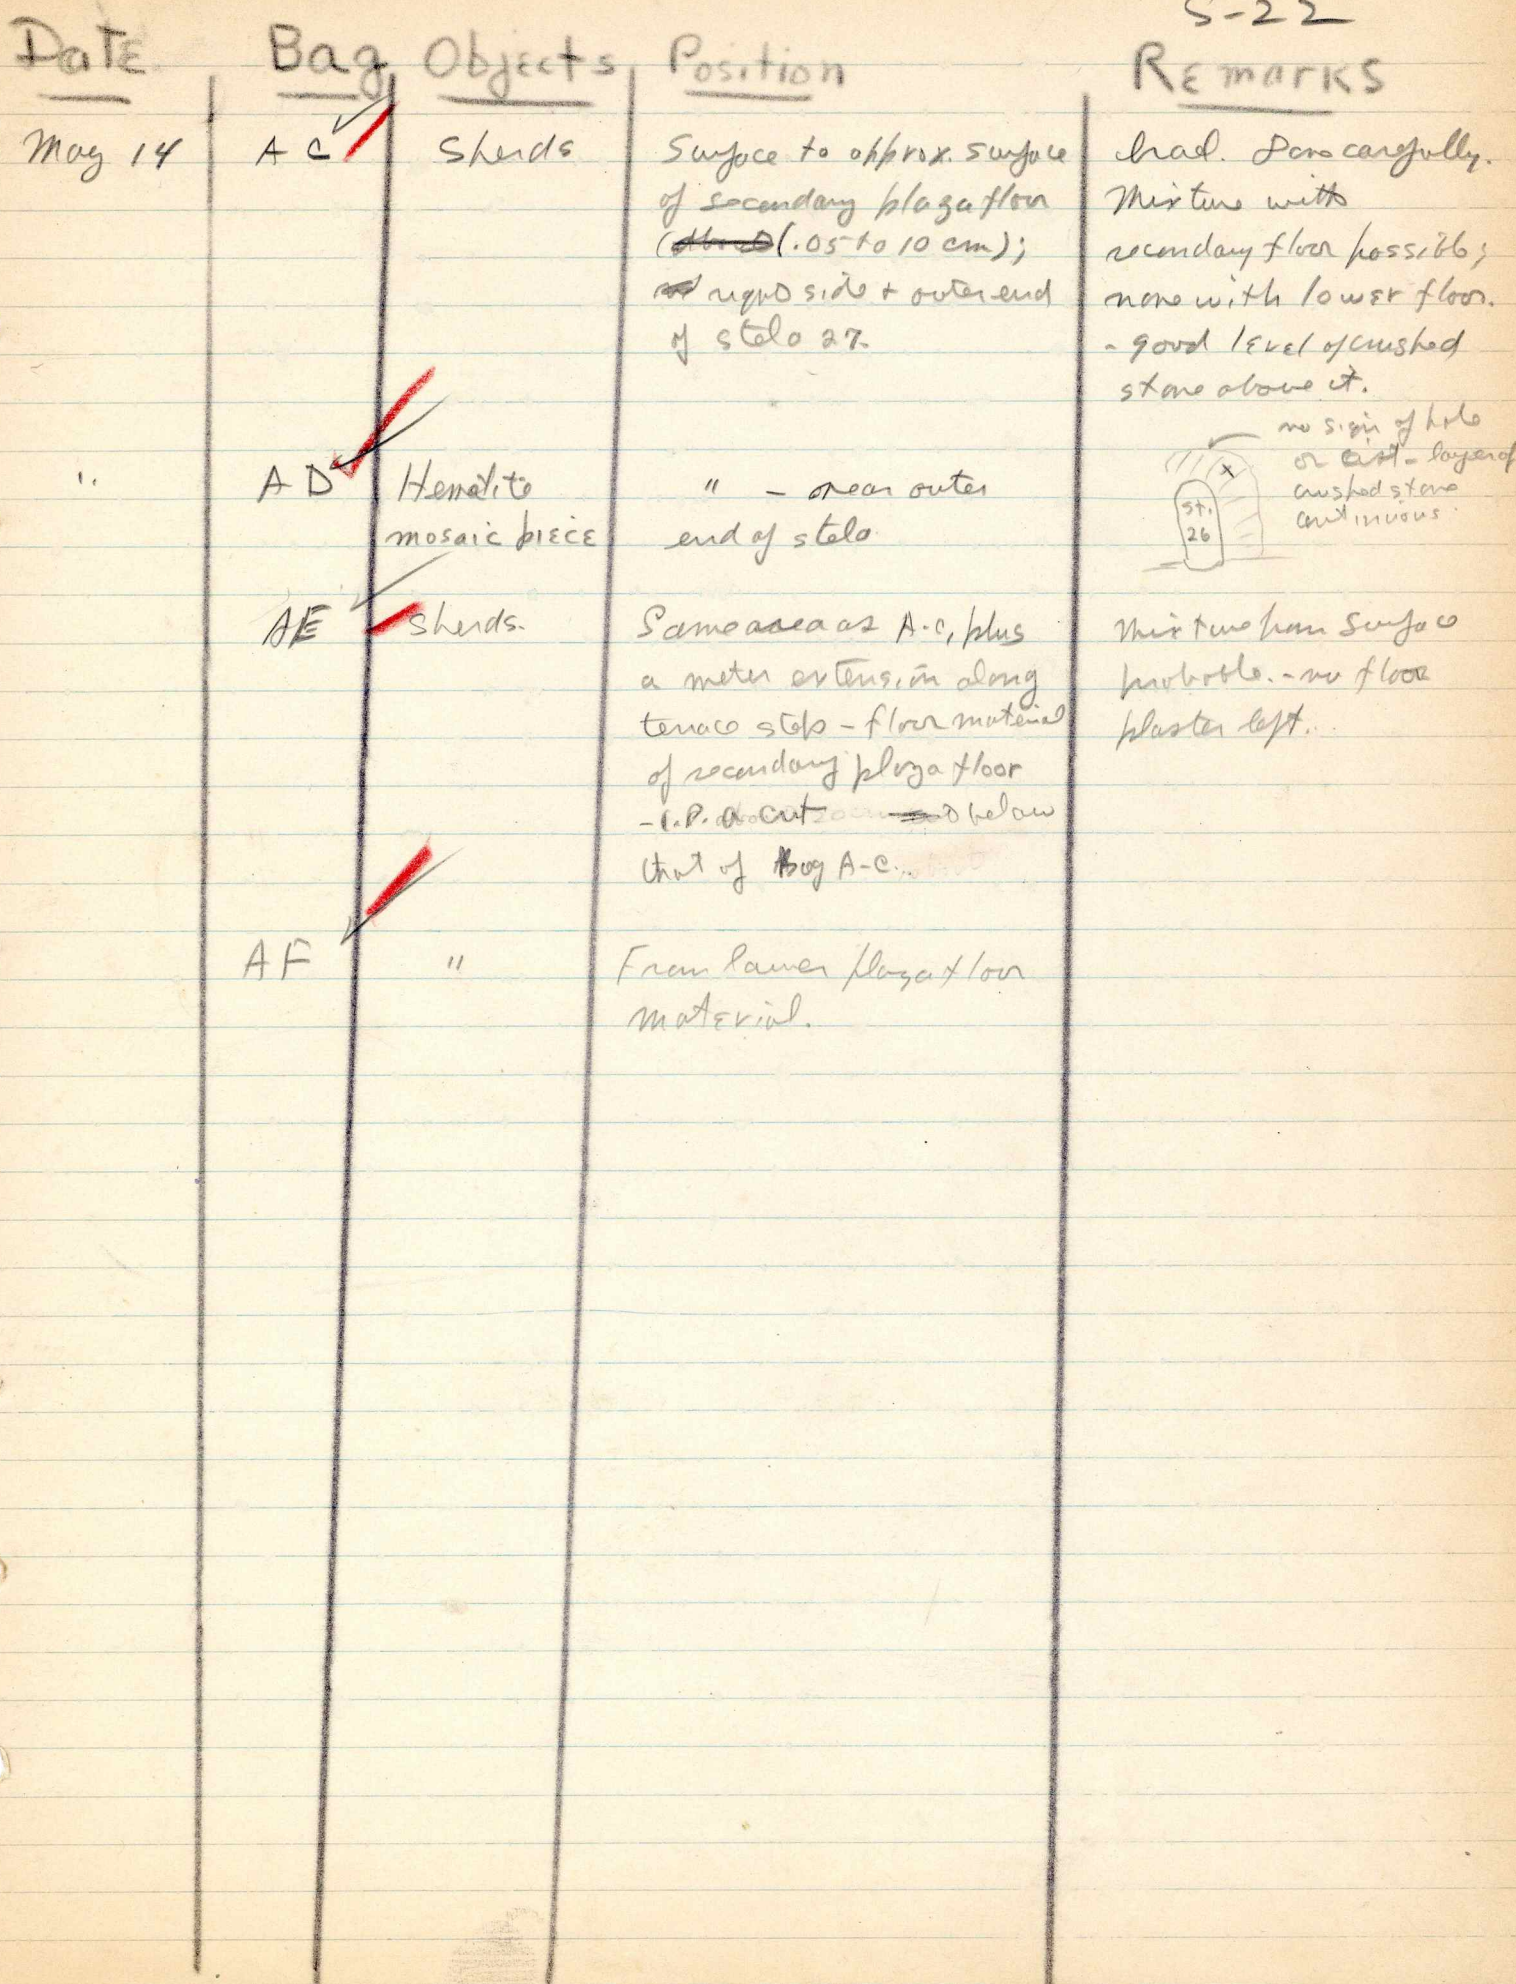 S-22
Date Bag Objects Position Remarks
May 14 A C Sherds Surface to approx. surface
of secondary plaza floor
(.05 to 10 cm);
right side + outer end
of stela 27.
Done carefully.
Mixture with
secondary floor possible;
none with lower floor.
- good level of crushed
stone above it.
" A D Hematite
mosaic piece
" - near outer
end of stela
no sign of hole
or cist - layer of
crushed stone
continuous.
x
St.
26
AE Sherds. Same area as A-C, plus
a meter extension along
terrace step - floor material
of secondary plaza floor
- i.e. a cut below
that of Bag A-C.
Mixture from surface
probable. - no floor
plaster left.
AF " From lower plaza floor
material.